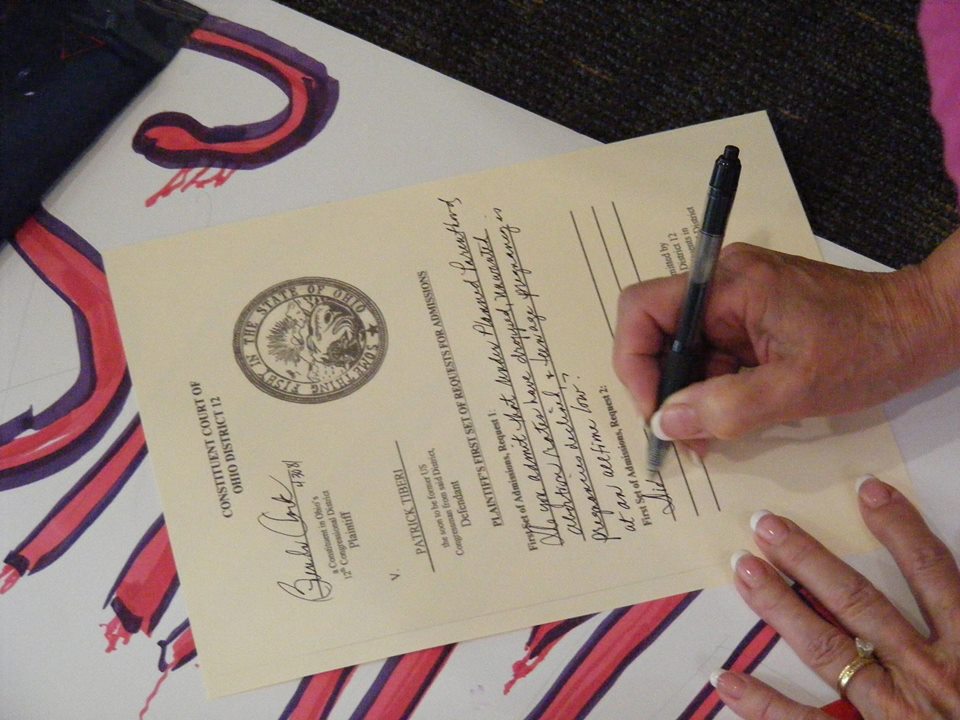 CONSTITUENT COURT OF
OHIO DISTRICT 12
FIRST IN THE STATE OF OHIO SOMETHING
43081
a Constituent in Ohio's
12th Congressional District
Plaintiff
v.
PATRICK TIBERI
the soon to be former US
Congressman from said District,
Defendant
PLAINTIFF'S FIRST SET OF REQUESTS FOR ADMISSIONS
PLAINTIFF'S REQUEST 1:
First Set of Admissions, Request 1:
you admit that under Planned Parenthood,
abortion rates have dropped, unwanted
pregnancies declined & teenage pregnancy is
at an all time low?
First Set of Admissions, Request 2:
District 12
District